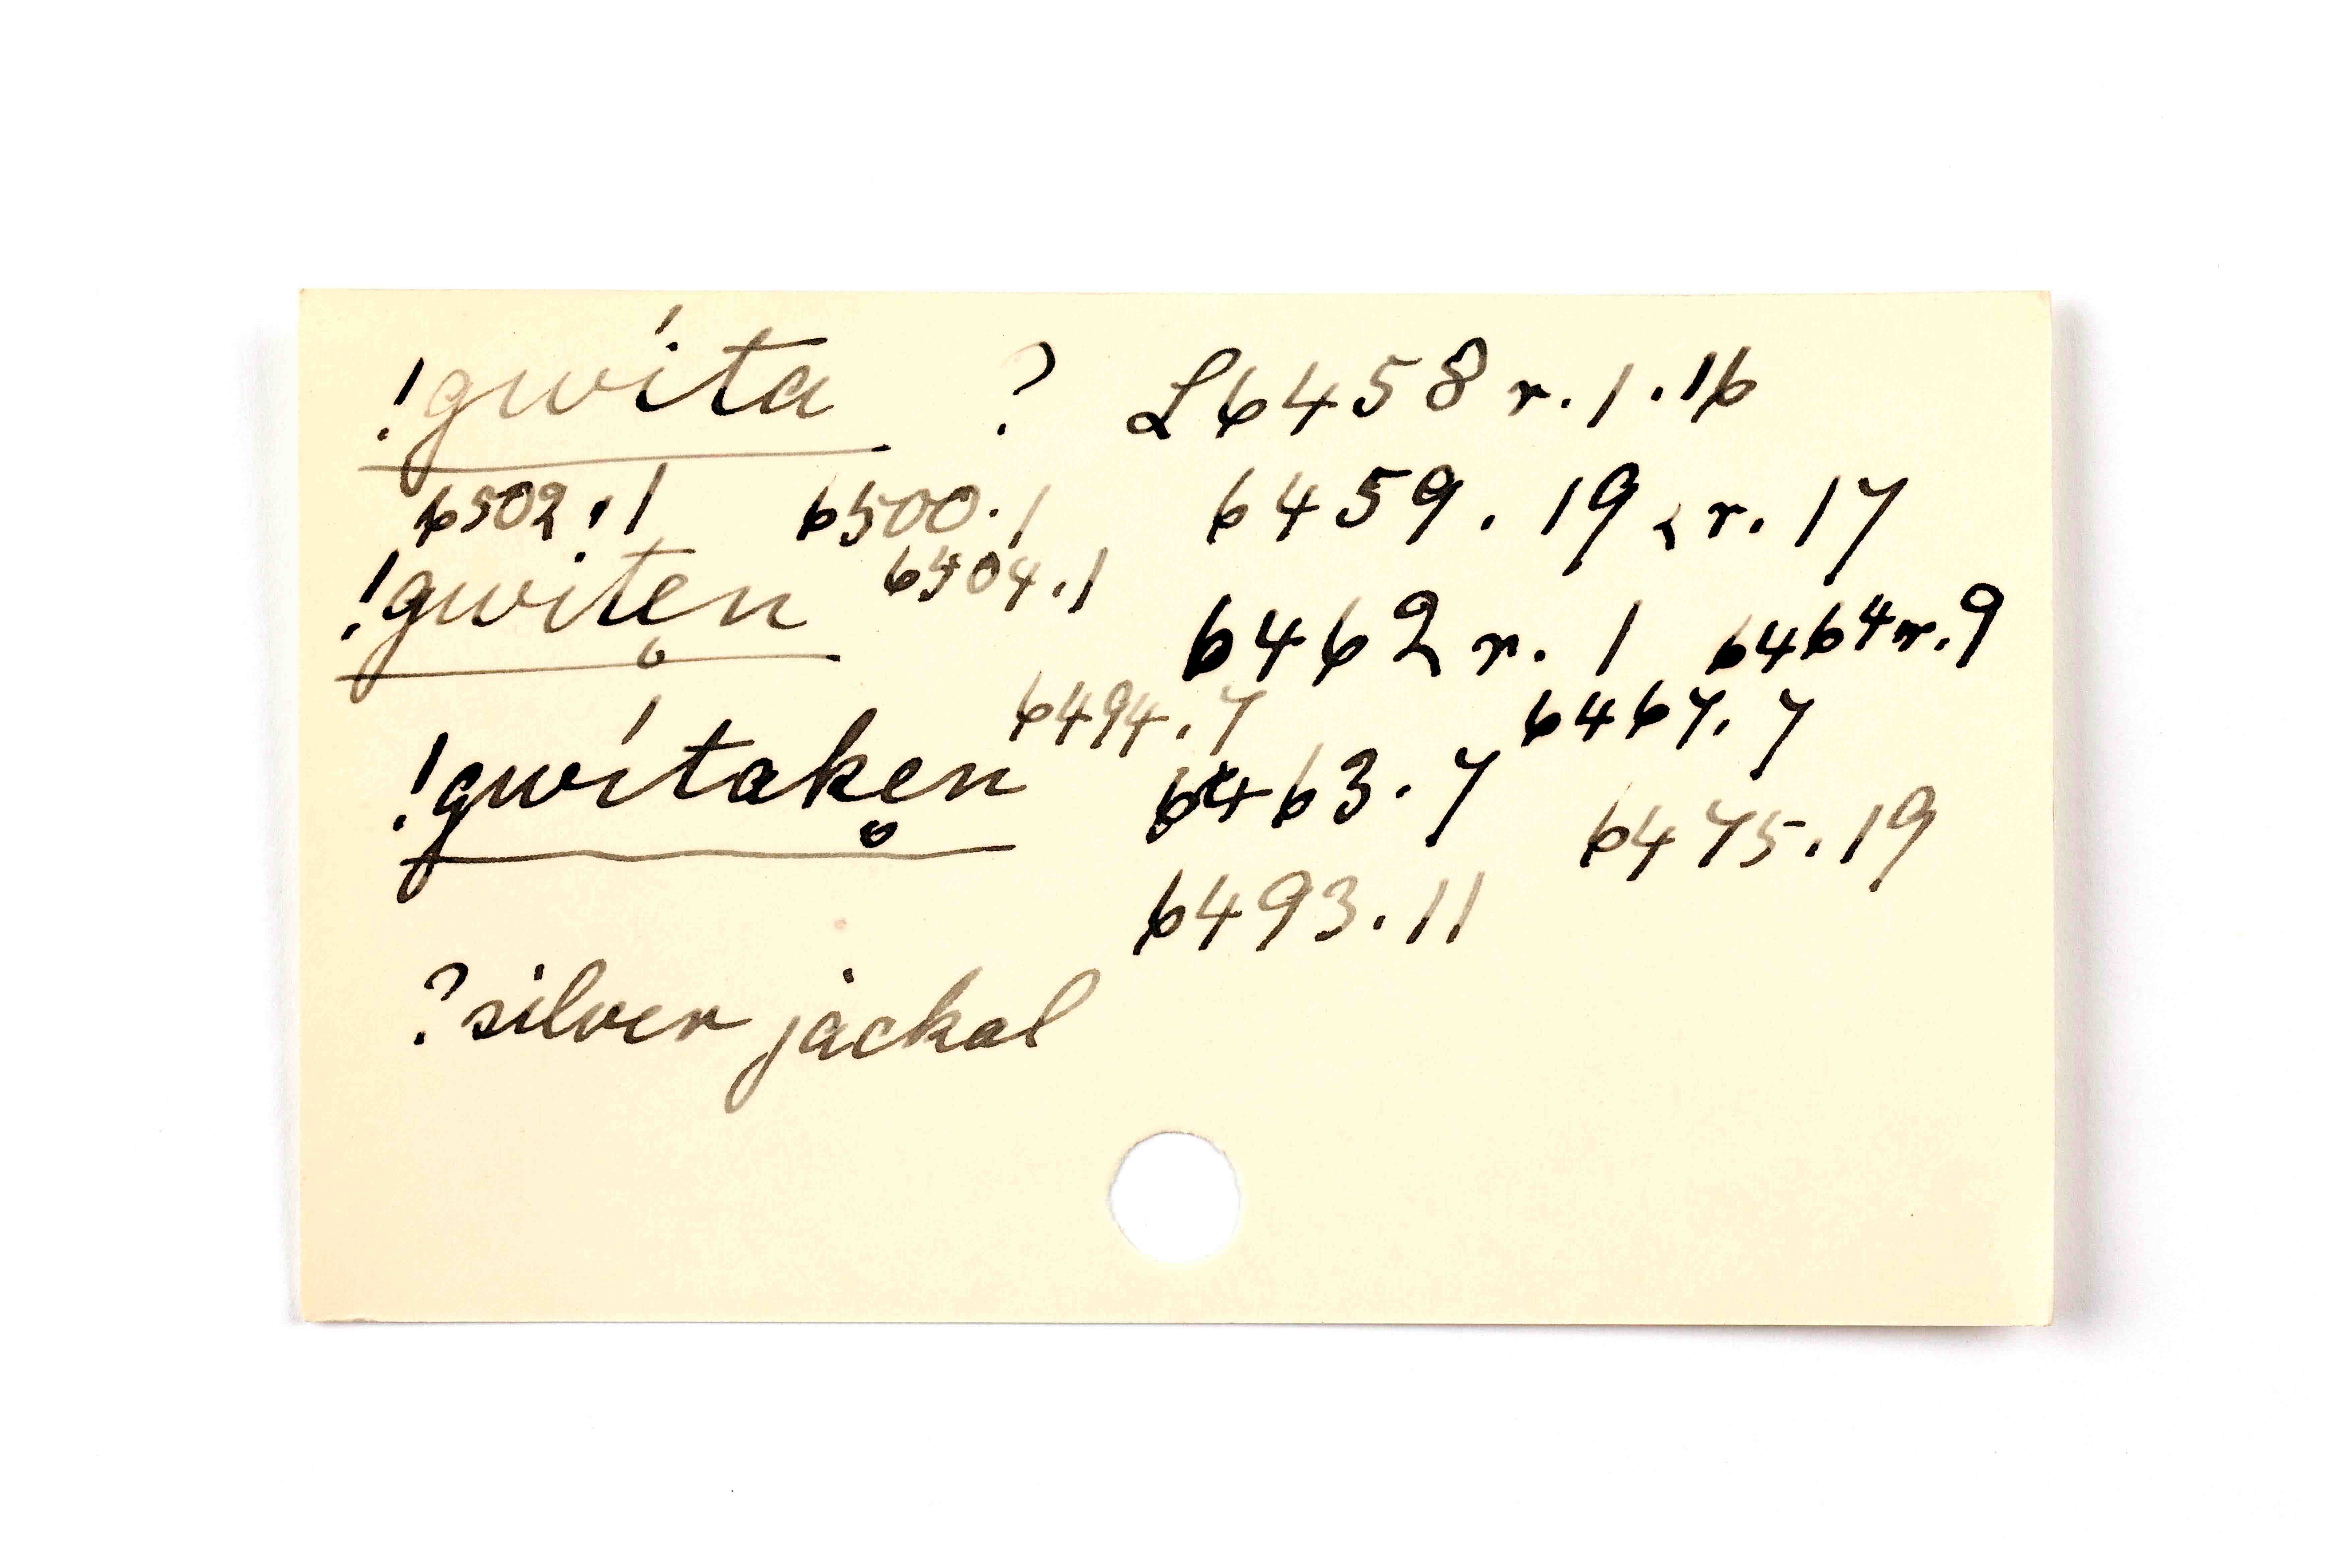 !gwíta ? L6458 r. 1.16
6502.1 6500.1 6459. 19 & r. 17
!gwite̥n 6504.1 6462 r. 1 6464 r. 9
6494.7 6467.7
!gwítake̥n 6463.7 6475.19
6493.11
? silver jackal